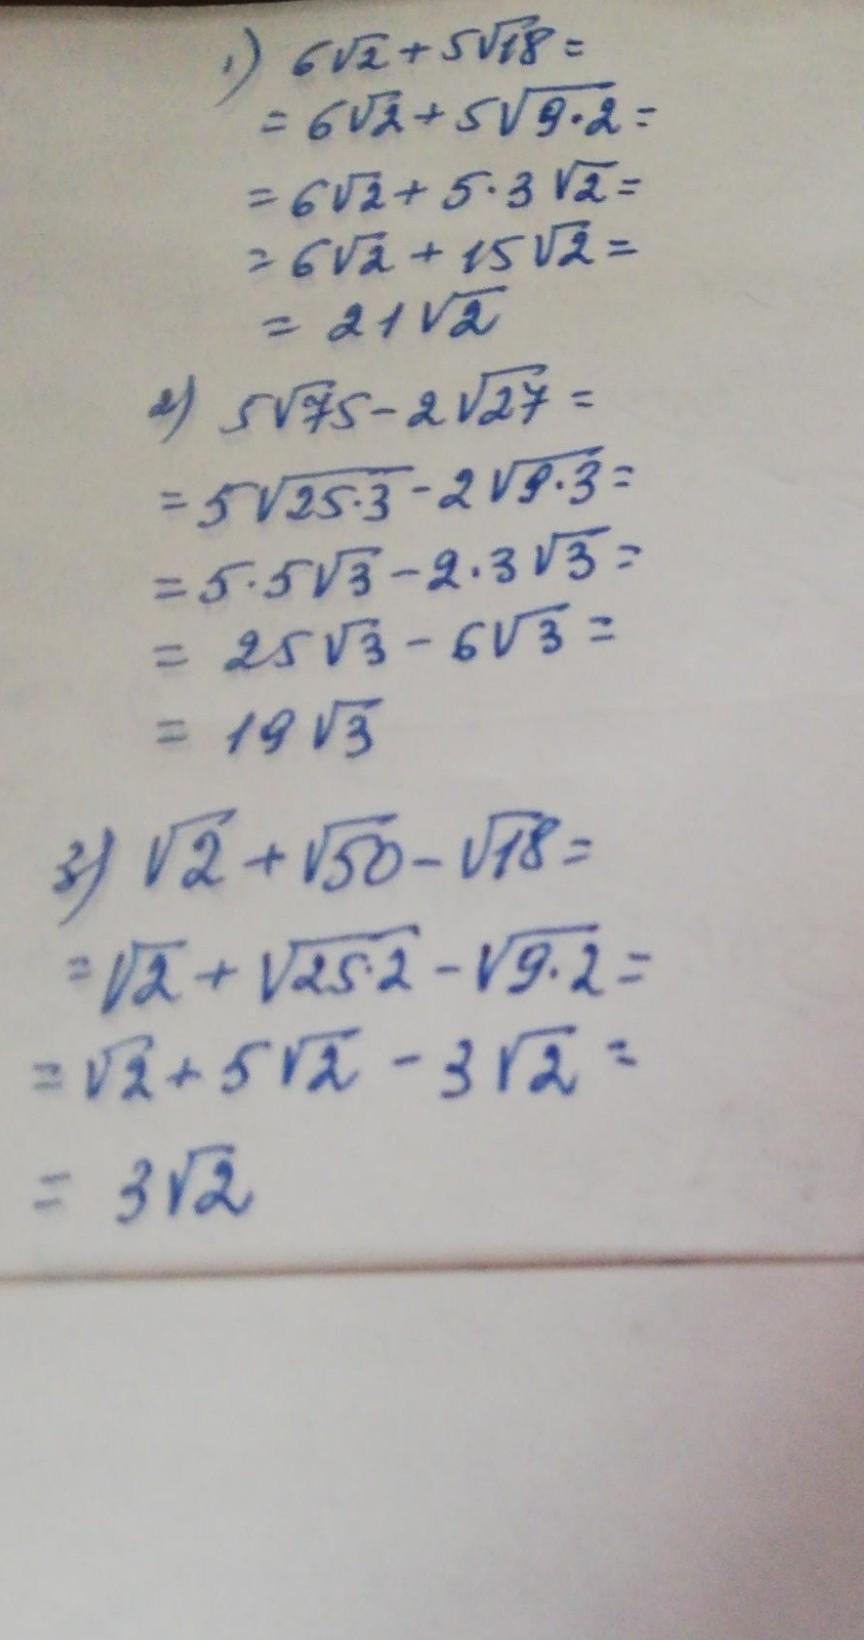 1) 6√2 + 5√18 =
= 6√2 + 5√9·2 =
= 6√2 + 5·3√2 =
= 6√2 + 15√2 =
= 21√2
2) 5√75 - 2√27 =
= 5√25·3 - 2√9·3 =
= 5·5√3 - 2·3√3 =
= 25√3 - 6√3 =
= 19√3
3) √2 + √50 - √18 =
= √2 + √25·2 - √9·2 =
= √2 + 5√2 - 3√2 =
= 3√2